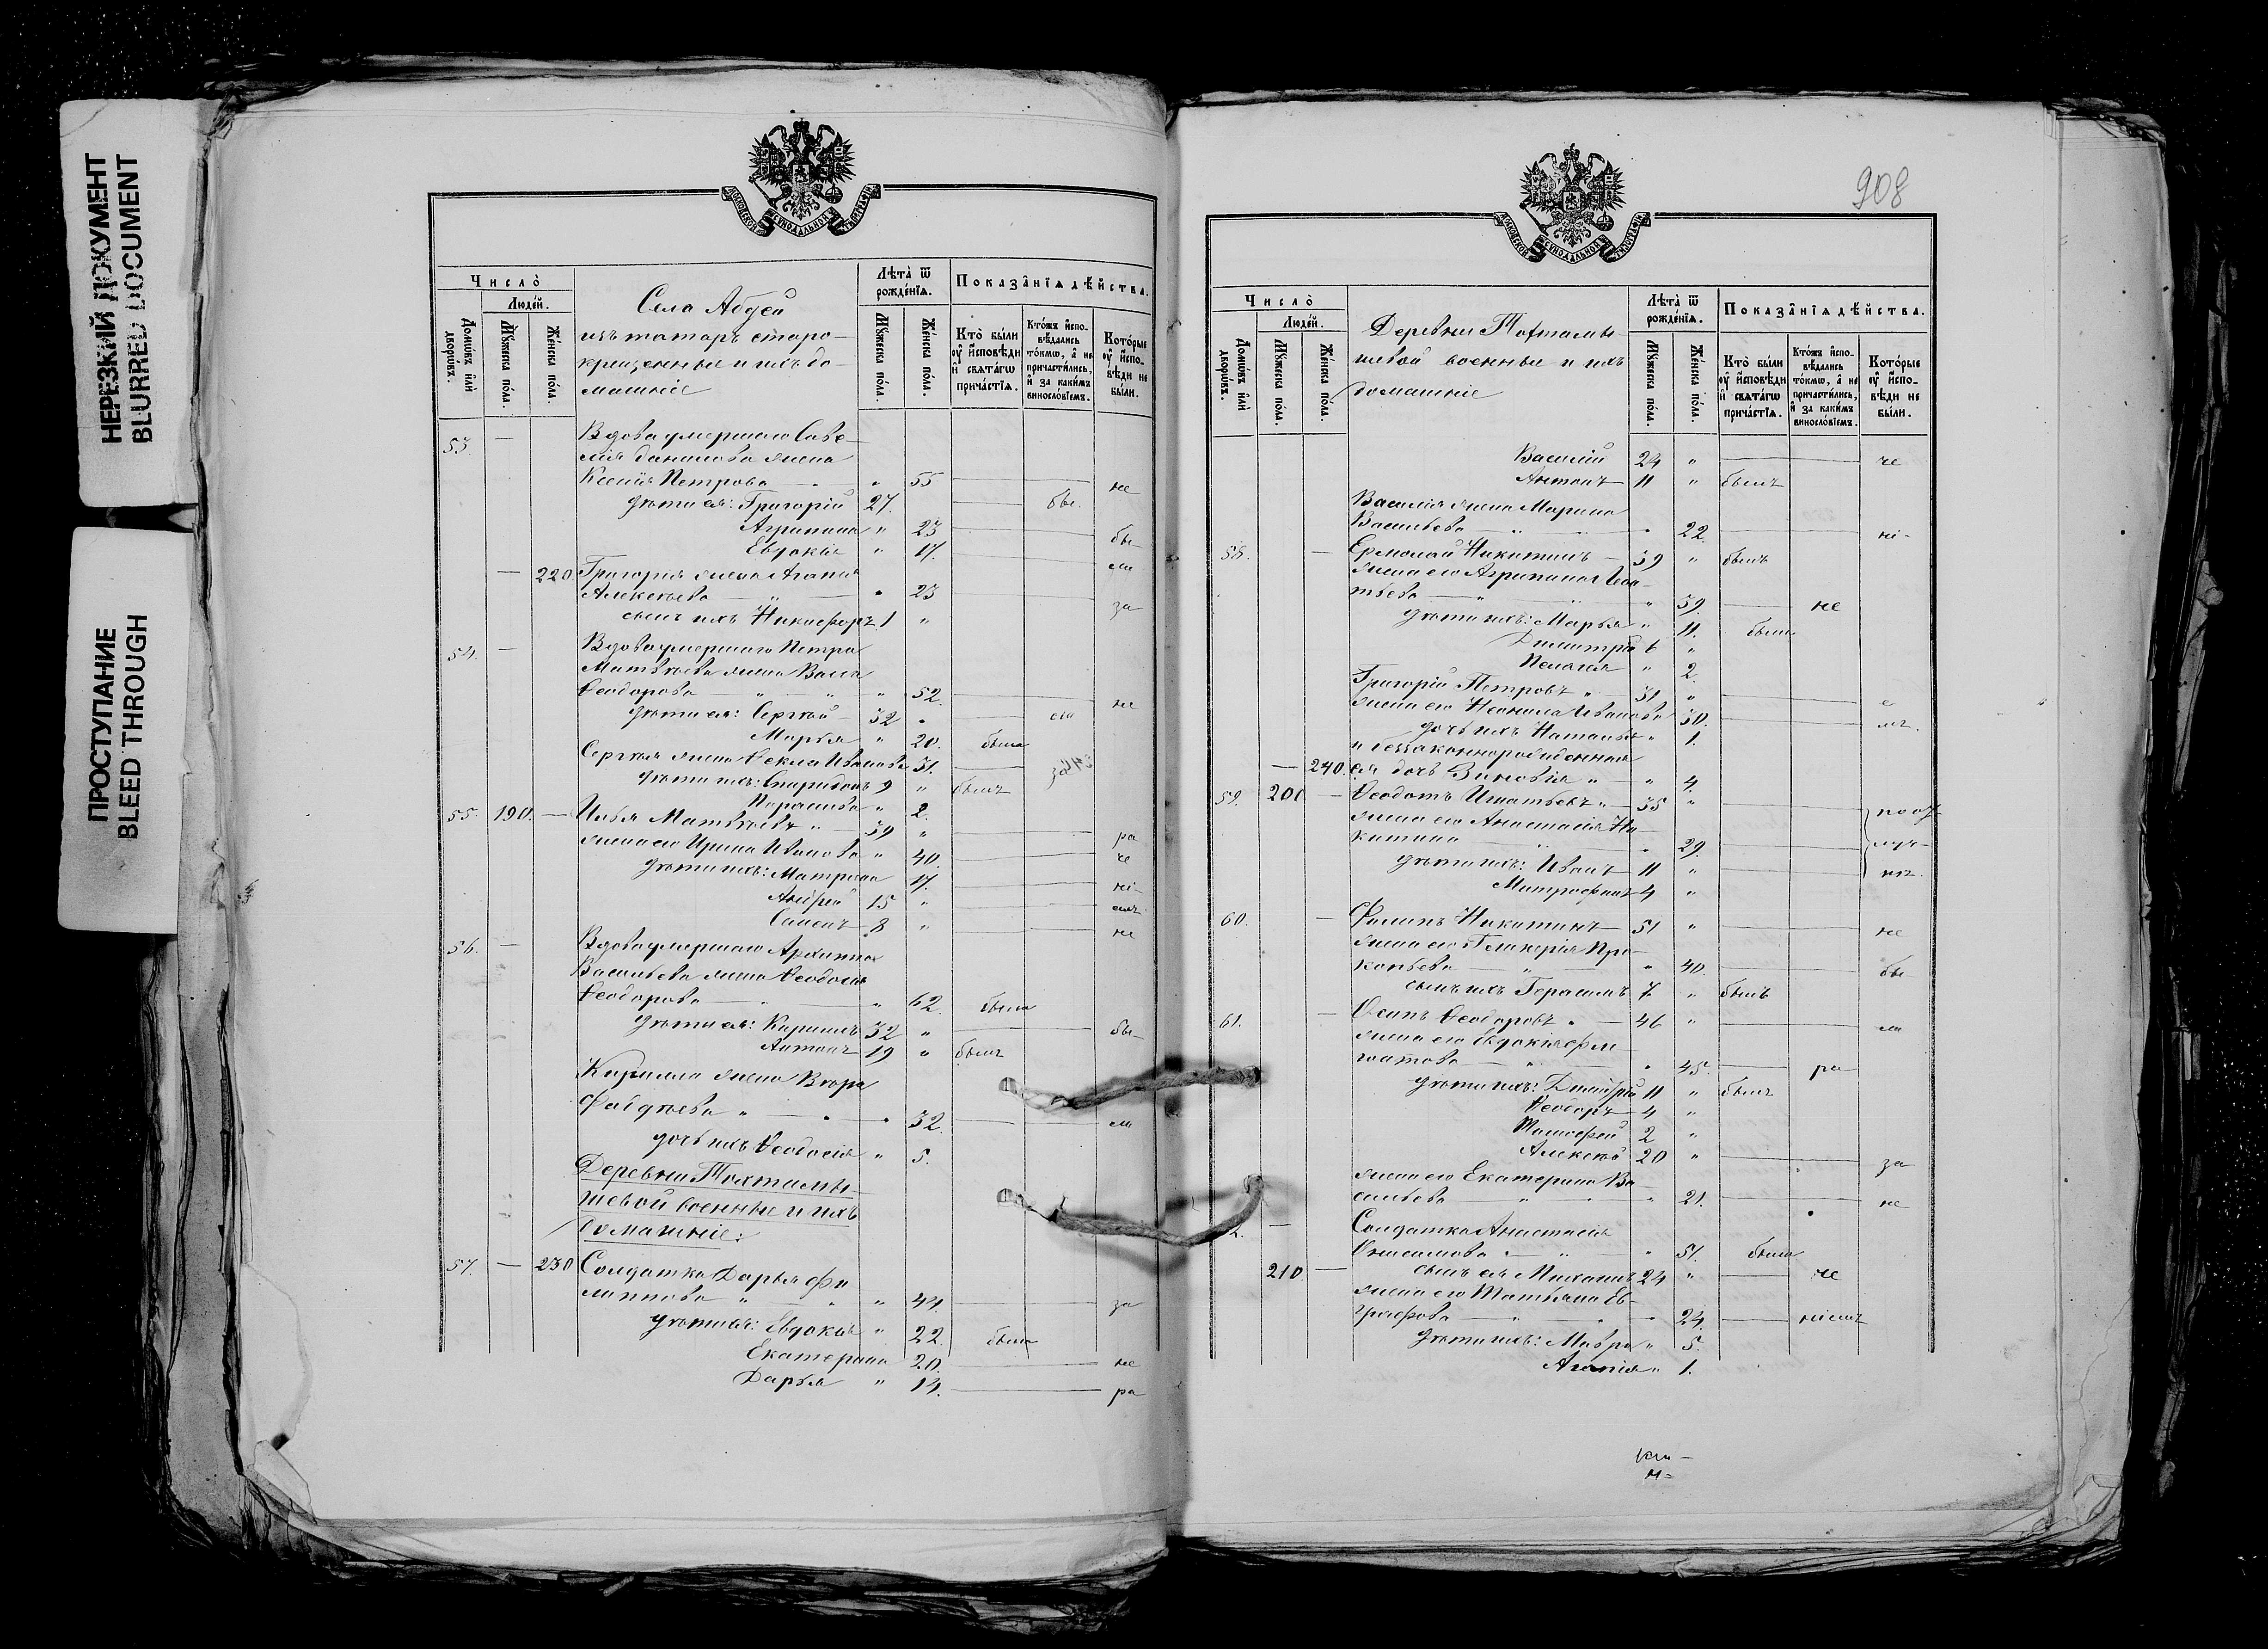 НЕРЕЗКИЙ ДОКУМЕНТ
BLURRED DOCUMENT
ПРОСТУПАНИЕ
BLEED THROUGH
МОСКОВСКОЙ СѴНОДАЛЬНОЙ ТИПОГРАФІИ
Число̀
Людей.
Домѡвъ или дворѡвъ.
Мꙋжеска пола.
Женска пола.
Села Абдей
изъ татаръ старо-
крещенные и ихъ до-
машніе
Лѣта ѿ рожденїѧ.
Мꙋжеска пола.
Женска пола.
Показанїѧ дѣйства.
Кто были ᲂу исповѣди и свѧтагѡ причастїѧ.
Ктожъ исповѣдались токмѡ, а не причастились, и за какимъ винословїемъ.
Которые ᲂу исповѣди не были.
53. — Вдова умершаго Саве-
лія Данилова жена
Ксенія Петрова " 55 не
дѣти ея: Григорій 27. бы.
Агрипина " 23 бы-
Евдокія " 17. ли
— 220. Григорія жена Агапія
Алексѣева " 23 за
сынъ ихъ Никифоръ 1 "
54. — Вдова умершаго Петра
Матвѣева жена Васса
Ѳеодорова " 52. не
дѣти ея: Сергѣй 32 "
Марья " 20. была
Сергѣя жена Ѳекла Иванова 31.
дѣти ихъ: Спиридонъ 9 " былъ
Параскева " 2.
55. 190. — Илья Матвѣевъ " 39 " ра
жена его Ирина Иванова " 40. че
дѣти ихъ: Матрона 17. ні-
Андрей 15 " емъ
Самсонъ 8 " не
56. — Вдова умершаго Архиппа
Васильева жена Ѳеодосья
Ѳеодорова " 62. была
дѣти ея: Кириллъ 32 " бы-
Антонъ 19 " былъ
Кирилла жена Вѣра
Фадѣева " 32. ли
дочь ихъ Ѳеодосія " 5.
Деревни Тохтамы-
шевой военные и ихъ
домашніе:
57. — 230 Солдатка Дарья Фи
липпова " 44. за
дѣти ея: Евдокія " 22. была
Екатерина 20. не
Дарья " 14. ра
908
МОСКОВСКОЙ СѴНОДАЛЬНОЙ ТИПОГРАФІИ
Число
Людей.
Домѡвъ или дворѡвъ.
Мꙋжеска пола.
Женска пола.
Деревни Тохтамы-
шевой военные и ихъ
домашніе
Лѣта ѿ рожденїѧ.
Мꙋжеска пола.
Женска пола.
Показанїѧ дѣйства.
Кто были ᲂу исповѣди и свѧтагѡ причастїѧ.
Ктожъ исповѣдались токмѡ, а не причастились, и за какимъ винословїемъ.
Которые ᲂу исповѣди не были.
Василій 24 " че
Антонъ 11 " былъ
Василія жена Марина
Васильева " 22 ні-
58. — Ермолай Никитинъ 39 " былъ
жена его Агрипина Игна-
тьева " 39. не
дѣти ихъ: Марья " 11. была
Димитрій 6 "
Пелагея " 2.
Григорій Петровъ " 31 " е
жена его Неонила Иванова 30. мъ.
дочь ихъ Наталья " 1.
и беззаконнорожденная
— 240. ея дочь Зиновія " 4.
59. 200 — Ѳеодотъ Игнатьевъ " 35 " по от-
жена его Анастасія Ни
китина " 29. луч-
дѣти ихъ: Иванъ 11 " кѣ.
Митрофанъ 4 "
60. — Филипъ Никитинъ 51 " не
жена его Гликерія Про-
копьева " 40. бы
сынъ ихъ Герасимъ 7 " былъ
61. — Осипъ Ѳеодоровъ " 46 " ли
жена его Евдокія
" 45. ра
дѣти ихъ: Димитрій 11 " былъ
Ѳеодоръ 4 "
Тимофей 2 "
Алексѣй 20 " за
жена его Екатерина Ва
сильева " 21. не
2. — Солдатка Анастасія
Онисимова " 51. была
210 — сынъ ея Михаилъ 24 " че
жена его Татьяна Ев-
графова " 24. ніемъ
дѣти ихъ: Мавра " 5.
Агапія " 1.